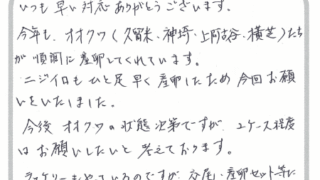 いつも早い対応ありがとうございます。
今年も、オオクワ(久留米・神埼・上阿古谷・横芝)たち
が順調に産卵してくれています。
ニジイロもひと足早く産卵したため今回お願
いをいたしました。
今後オオクワの状態次第ですが、2ケース程度
はお願いしたいと考えております。
ラッキーもやっているのですが交尾・産卵セット等に